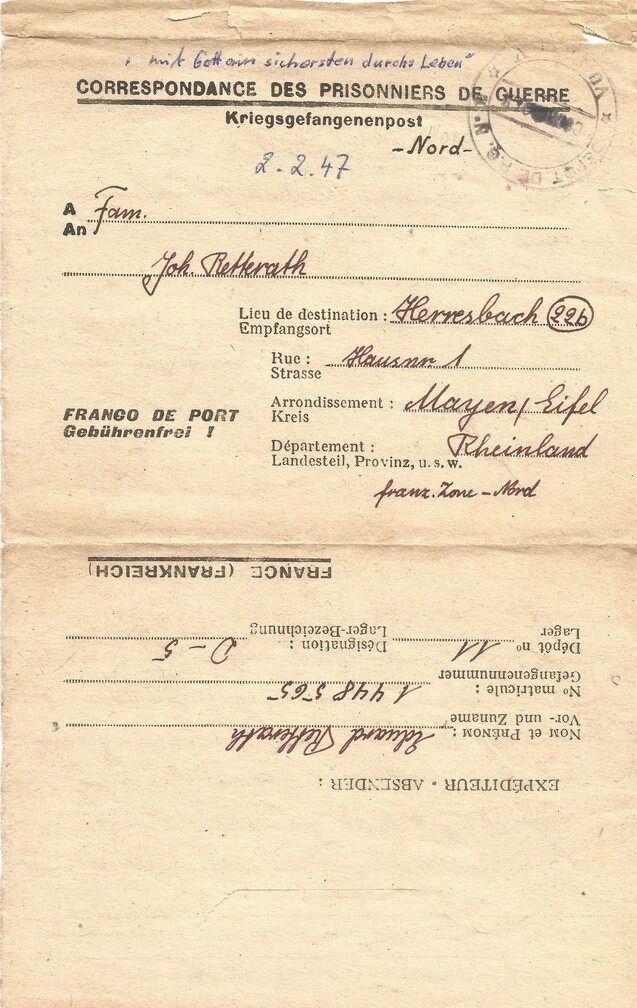 "mit Gott am sichersten durchs Leben"
CORRESPONDANCE DES PRISONNIERS DE GUERRE
Kriegsgefangenenpost
-Nord-
2.2.47
A Fam.
An
Joh. Retterath
Lieu de destination : Herresbach 22b
Empfangsort
Rue : Hausnr 1
Strasse
FRANCO DE PORT
Gebührenfrei !
Arrondissement : Mayen/Eifel
Kreis
Département : Rheinland
Landesteil, Provinz, u. s. w.
franz. Zone - Nord
EXPÉDITEUR - ABSENDER :
NOM et PRÉNOM : Eduard Retterath
Vor- und Zuname
No matricule : 1 448 565
Gefangenennummer
Dépôt no 11 Désignation : D - 5
Lager Lager-Bezeichnung
FRANCE (FRANKREICH)